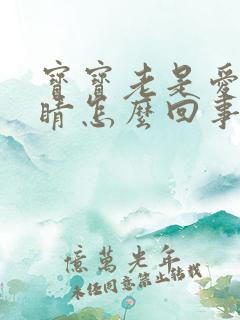 寶寶老是愛
睛怎麼回事
億萬光年
未经同意禁止转载